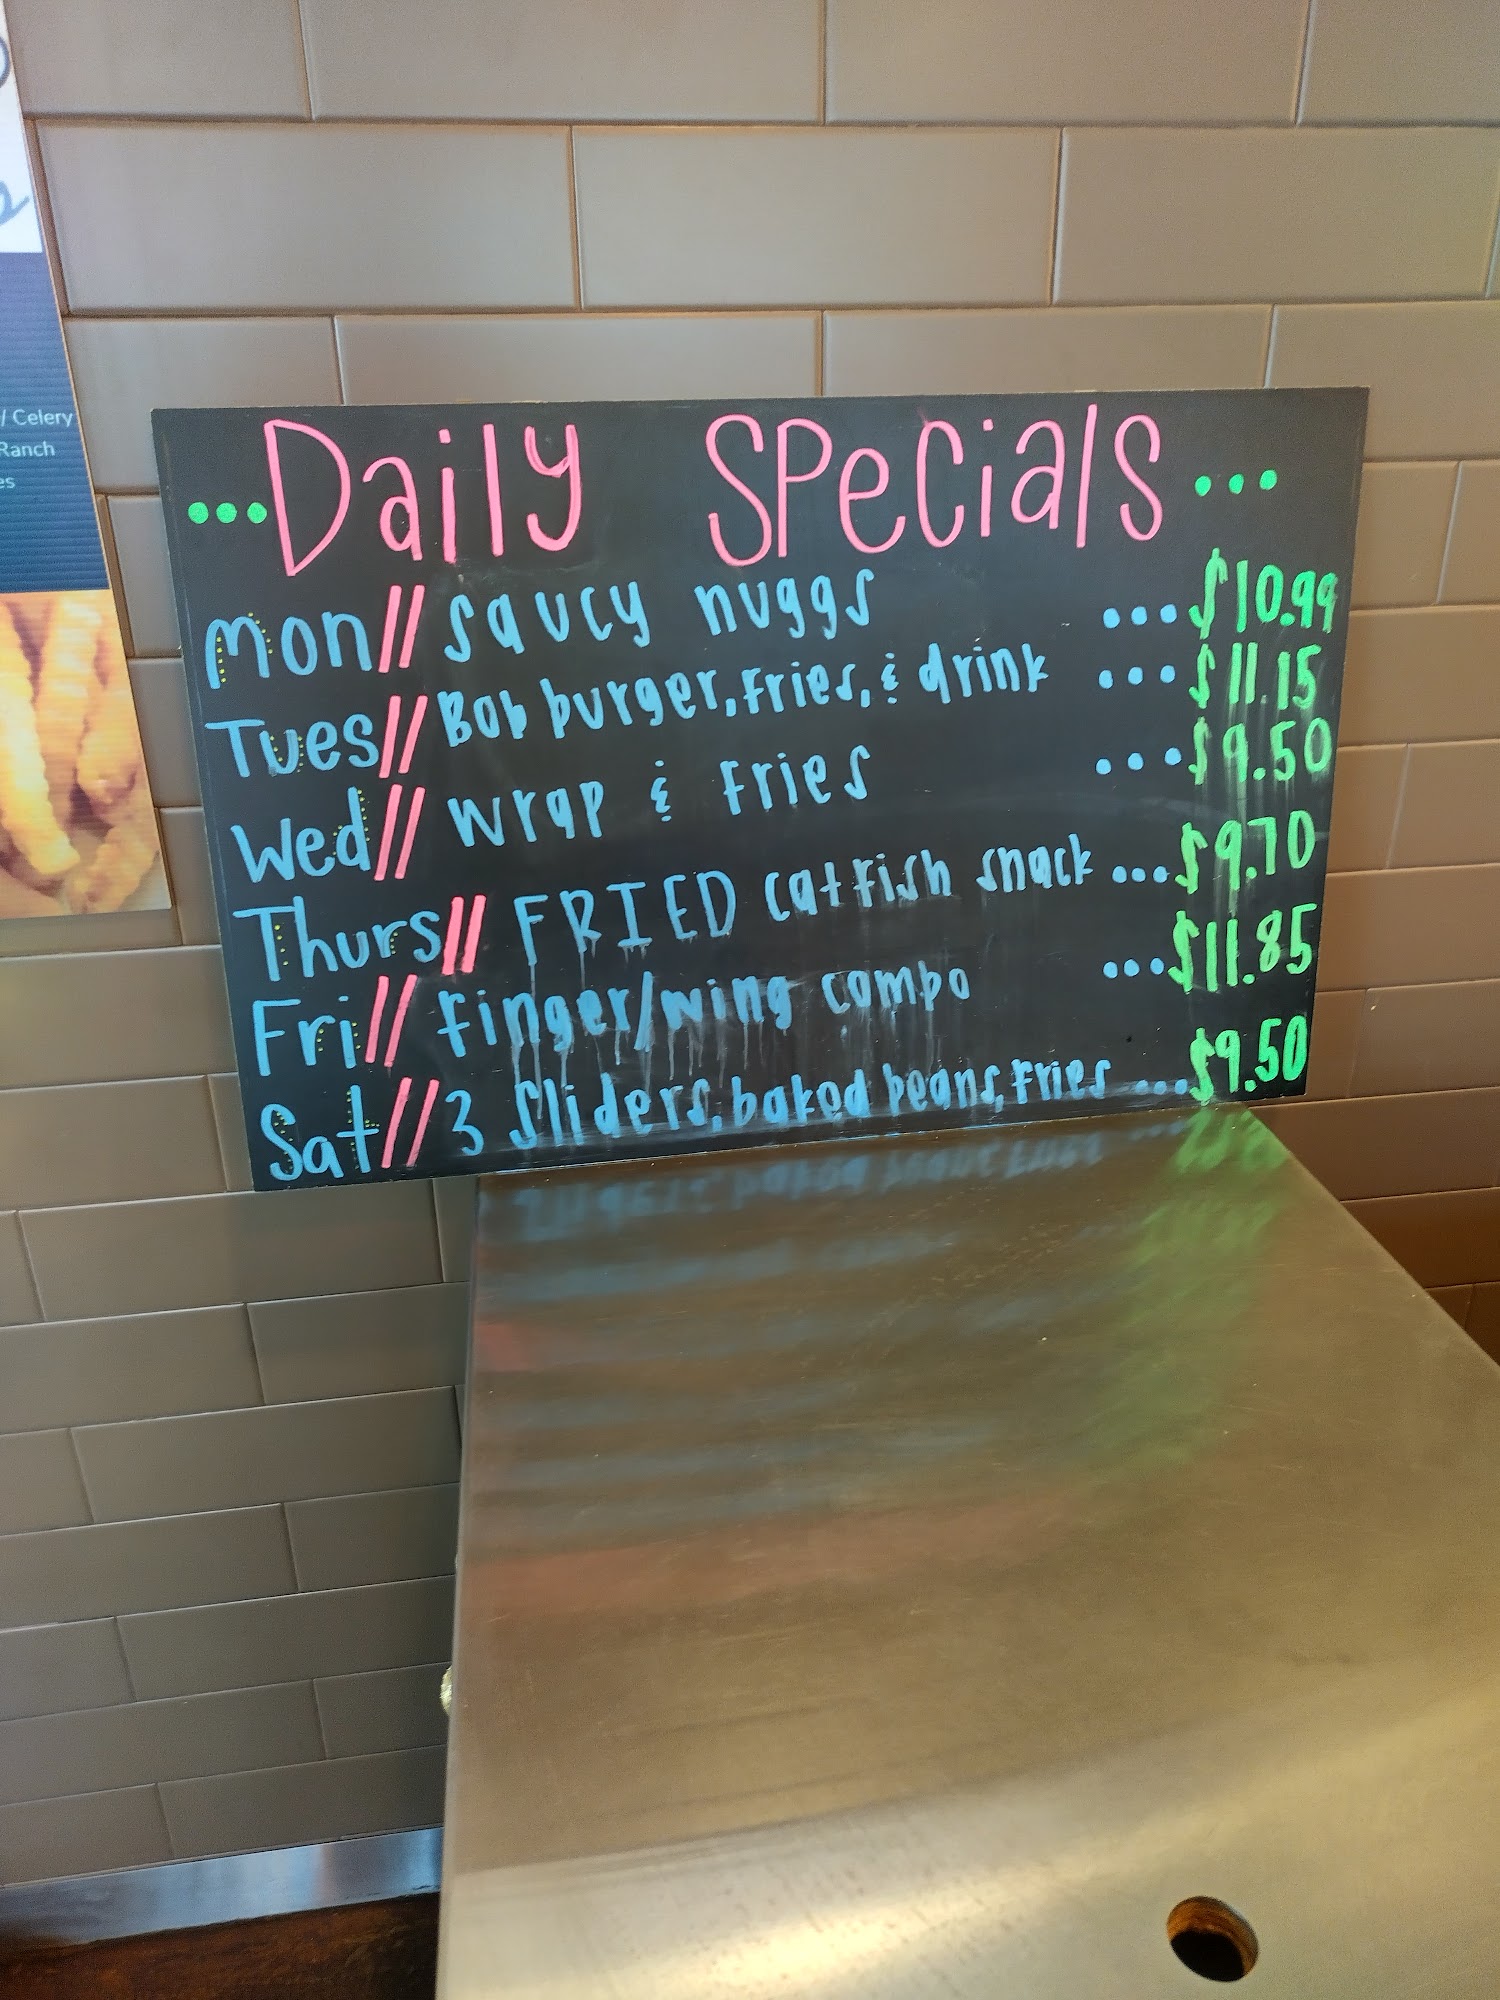 / Celery
Ranch
es
...Daily Specials...
Mon// saucy nuggs ...$10.99
Tues// Bob burger, fries, & drink ...$11.15
Wed// wrap & fries ...$9.50
Thurs// FRIED catfish snack ...$9.70
Fri// finger/wing combo ...$11.85
Sat// 3 sliders, baked beans, fries ...$9.50